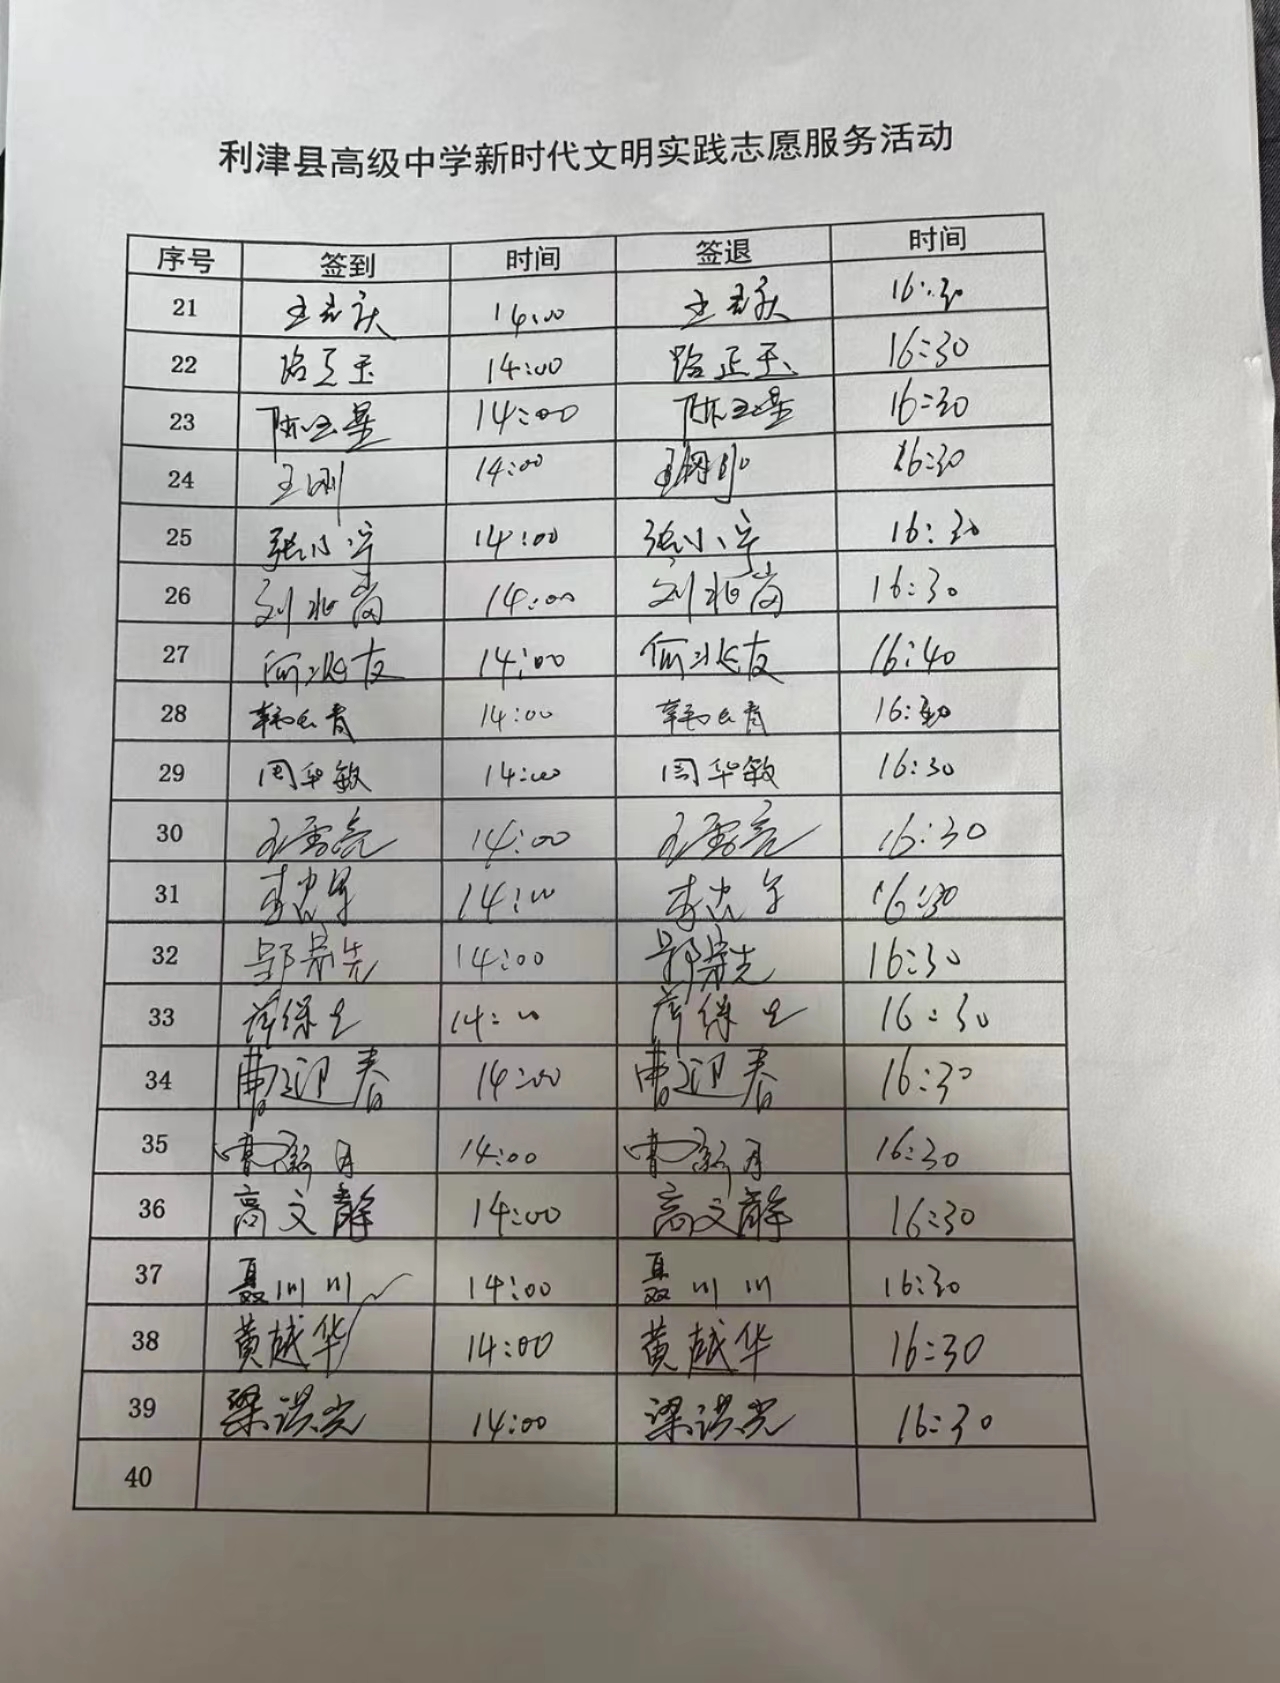 利津县高级中学新时代文明实践志愿服务活动
序号 签到 时间 签退 时间
21 14:00 16:30
22 路正玉 14:00 路正玉 16:30
23 陈玉星 14:00 陈玉星 16:30
24 王刚 14:00 16:30
25 张小宁 14:00 张小宁 16:30
26 刘兆岗 14:00 刘兆岗 16:30
27 14:00 16:40
28 14:00 16:30
29 周华敏 14:00 周华敏 16:30
30 王雪亮 14:00 王雪亮 16:30
31 14:00 16:30
32 14:00 16:30
33 14:00 16:30
34 曹迎春 14:00 曹迎春 16:30
35 曹新月 14:00 曹新月 16:30
36 高文静 14:00 高文静 16:30
37 聂川川 14:00 聂川川 16:30
38 黄越华 14:00 黄越华 16:30
39 梁洪光 14:00 梁洪光 16:30
40